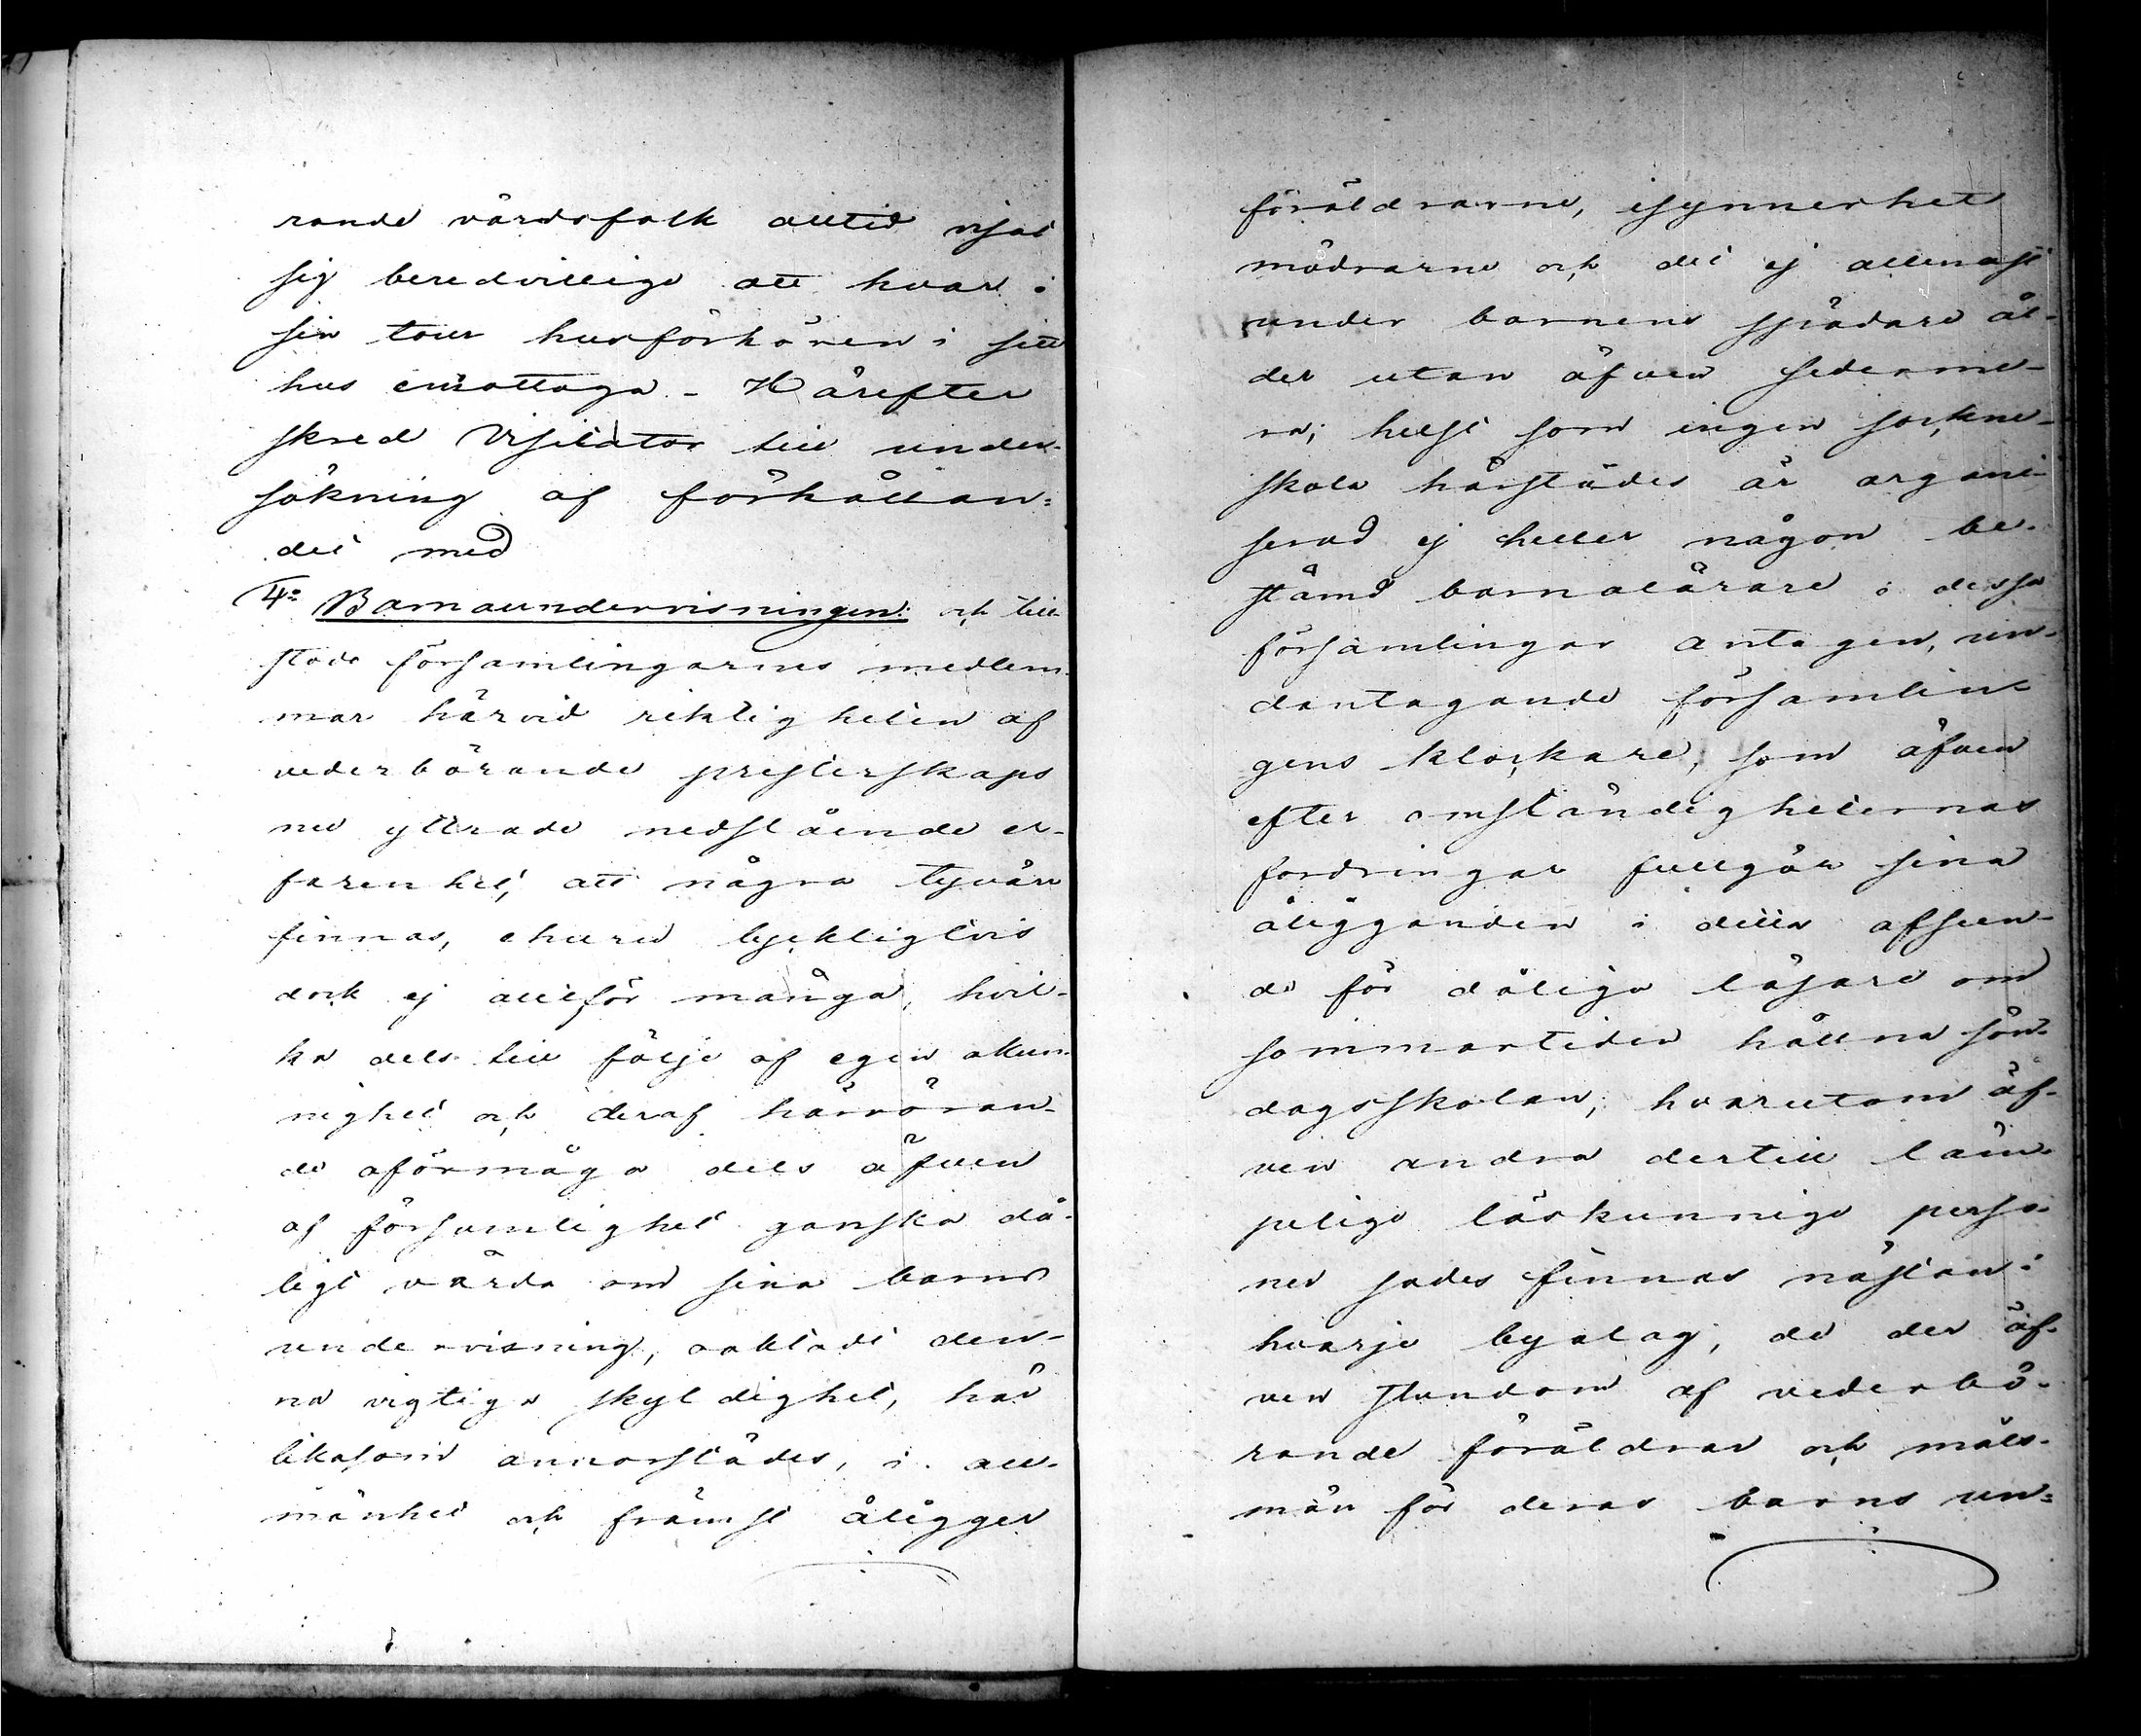 rande värdsfolk alltid visat
sig beredvillige att hvar i
sin tour husförhören i sitt
hus emottaga. - Härefter
skred Visitator till under-
sökning af förhållan=
det med
4:o Barnaundervisningen: och till-
stodo församlingarnes medlem-
mar härvid riktigheten af
vederbörande presterskaps
nu yttrade nedslående er-
farenhet, att några tyvärr
finnas, ehuru lyckligtvis
dock ej alltför många, hvil-
ka dels till följe af egen okun-
nighet och deraf härröran-
de oförmåga dels äfven
af försumlighet ganska då-
ligt vårda om sina barns
undervisning, oaktadt den-
na vigtiga skyldighet, här
likasom annorstädes, i all-
mänhet och främst åligger
föräldrarne, isynnerhet
mödrarne och det ej allenast
under barnens spädare ål-
der utan äfven sederme-
ra; helst som ingen sockne-
skola härstädes är organi-
serad ej heller någon be-
stämd barnalärare i dessa
församlingar antagen, un-
dantagande församlin-
gens klockare, som äfven
efter omständigheternas
fordringar fullgör sina
åligganden i detta afseen-
de för dålige läsare om
sommartiden hållna sön-
dagsskolan; hvarutom äf-
ven andra dertill läm-
pelige läskunnige perso-
ner sades finnas nästan i
hvarje byalag, de der äf-
ven stundom af vederbö-
rande föräldrar och måls-
män för deras barns un=